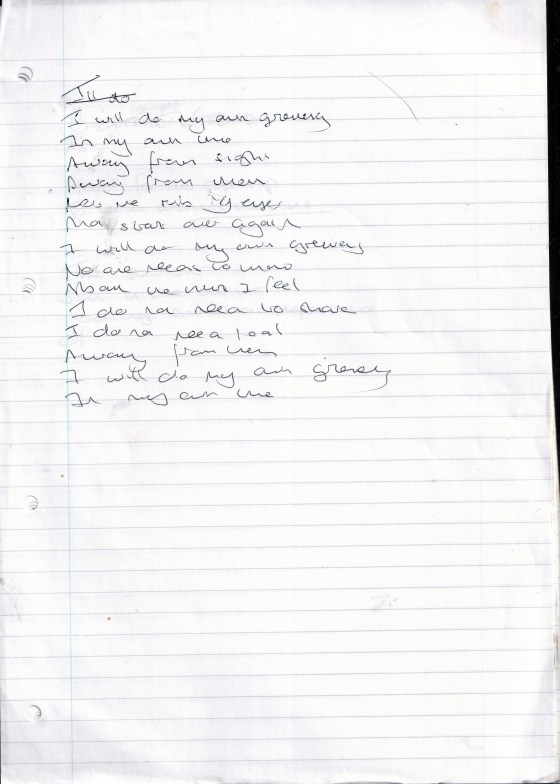 I'll do
I will do my own grieving
In my own time
Away from sight
Away from men
Let me rub my eyes
And start over again
I will do my own grieving
No one needs to know
About the hurt I feel
I do not need to share
I do not need
Away from men
I will do my own grieving
In my own time